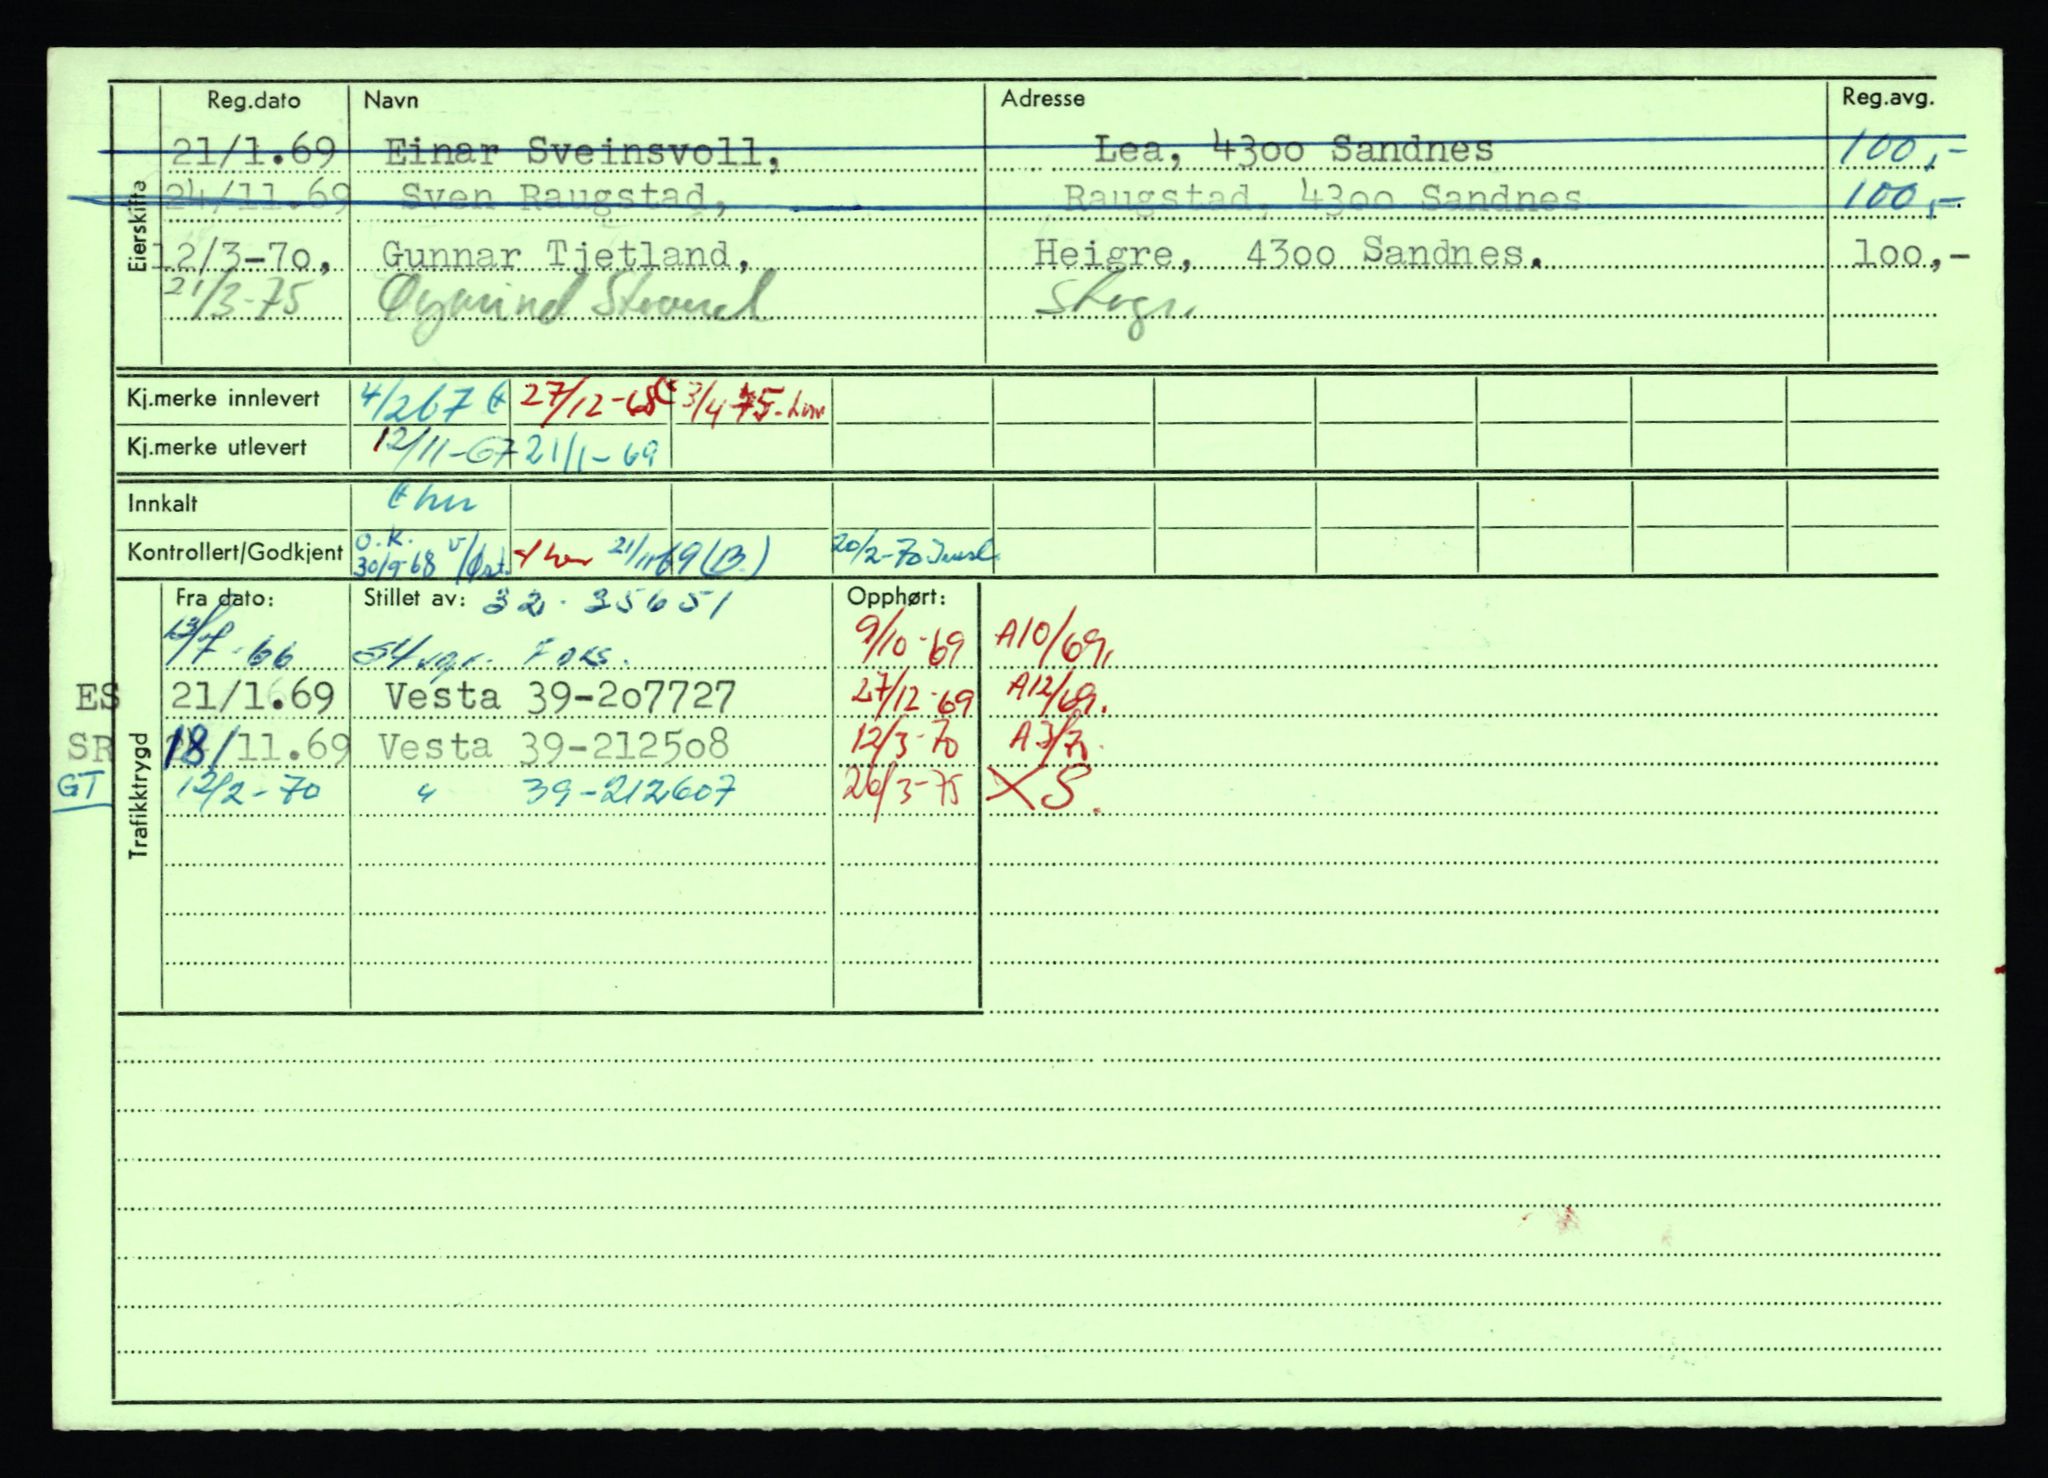 Reg.dato Navn Adresse Reg.avg.
Eierskifte
21/1.69 Einar Sveinsvoll, Lea, 4300 Sandnes 100,-
24/11.69 Sven Raugstad, Raugstad, 4300 Sandnes 100,-
12/3-70, Gunnar Tjetland, Heigre, 4300 Sandnes. 100,-
21/3-75 Øyvind Strand
Kj.merke innlevert 4/2 67 27/12-68 3/4 75.
Kj.merke utlevert 12/11-67 21/1-69
Innkalt
Kontrollert/Godkjent O.K. 30/9-68 v/Øst. 21/11 69 (B.) 20/2-70
Trafikktrygd
Fra dato: Stillet av: 32-35651 Opphørt:
66 9/10-69 A10/69.
ES 21/1.69 Vesta 39-207727 27/12-69 A12/69.
SR 18/11.69 Vesta 39-212508 12/3-70 A3/70.
GT 12/2-70 " 39-212607 26/3-75 XS.